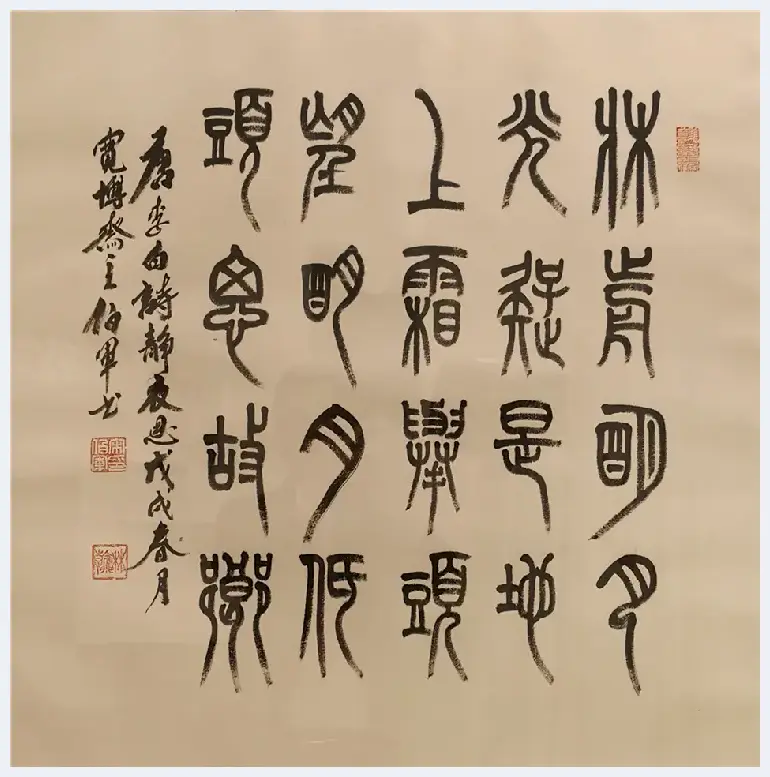 牀前明月
光疑是地
上霜舉頭
望明月低
頭思故鄉
唐李白詩靜夜思戊戌春月
寬博齋主伯軍书